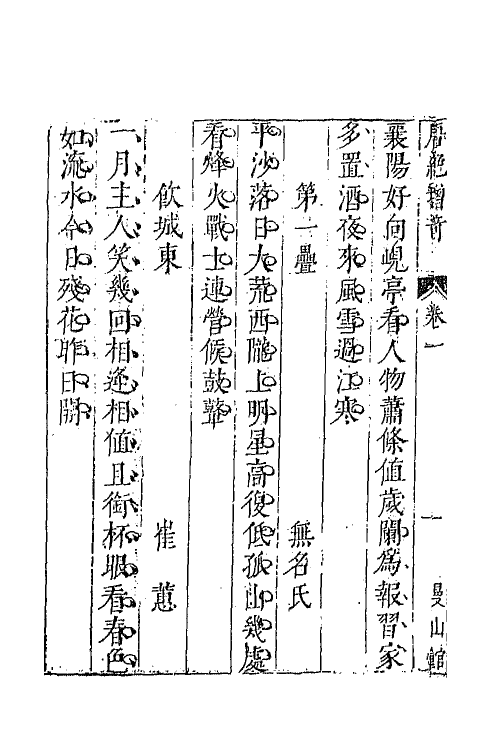 唐絕增奇 卷一 一 曼山館
襄陽好向峴亭看人物蕭條值歲闌為報習家
多置酒夜來風雪過江寒
第一疊 無名氏
平沙落日大荒西隴上明星高復低孤山幾處
看烽火戰士連營候鼓鼙
飲城東 崔蕙
一月主人笑幾回相逢相值且銜杯眼看春色
如流水今日殘花昨日開